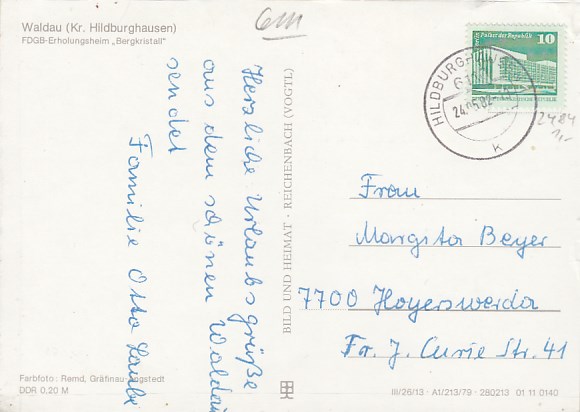 Waldau (Kr. Hildburghausen)
FDGB-Erholungsheim „Bergkristall"
6m
10
Palast der Republik
HILDBURGHAUSEN
24.05.82
K
2484
1,-
Herzliche Urlaubsgrüße
aus dem schönen Waldau
sendet
Familie Otto Laube
BILD UND HEIMAT · REICHENBACH (VOGTL)
Frau
Margita Beyer
7700 Hoyerswerda
Fr. J. Curie Str. 41
Farbfoto: Remd, Gräfinau-Angstedt
DDR 0,20 M
III/26/13 · A1/213/79 · 280213 01 11 0140